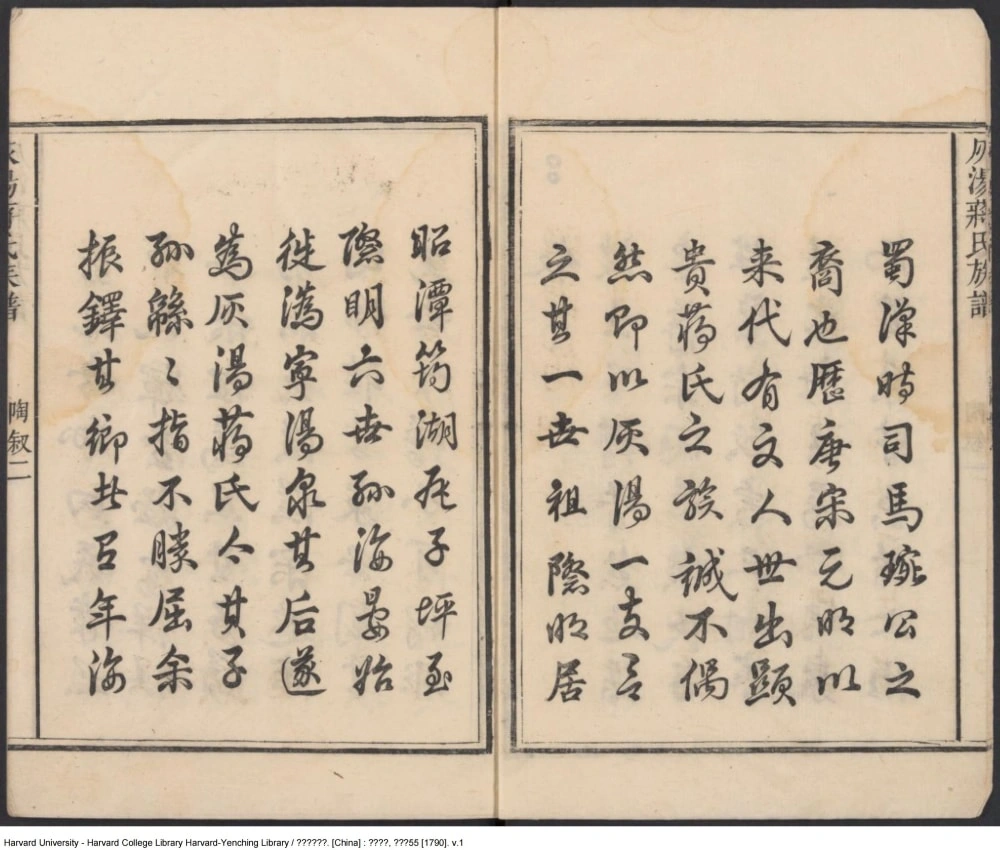 灰湯蔣氏族譜
蜀漢時司馬琬公之
裔也歷唐宋元明以
来代有文人世出顯
貴蔣氏之族誠不偶
然即以灰湯一支言
之其一世祖際明居
昭潭筠湖瓦子坪至
際明六世孫海晏始
徙溈寧湯泉其后遂
為灰湯蔣氏今其子
孫緜〻指不勝屈余
振鐸其鄉年海
灰湯蔣氏族譜 陶叙二
Harvard University - Harvard College Library Harvard-Yenching Library / ??????. [China] : ????, ???55 [1790]. v.1